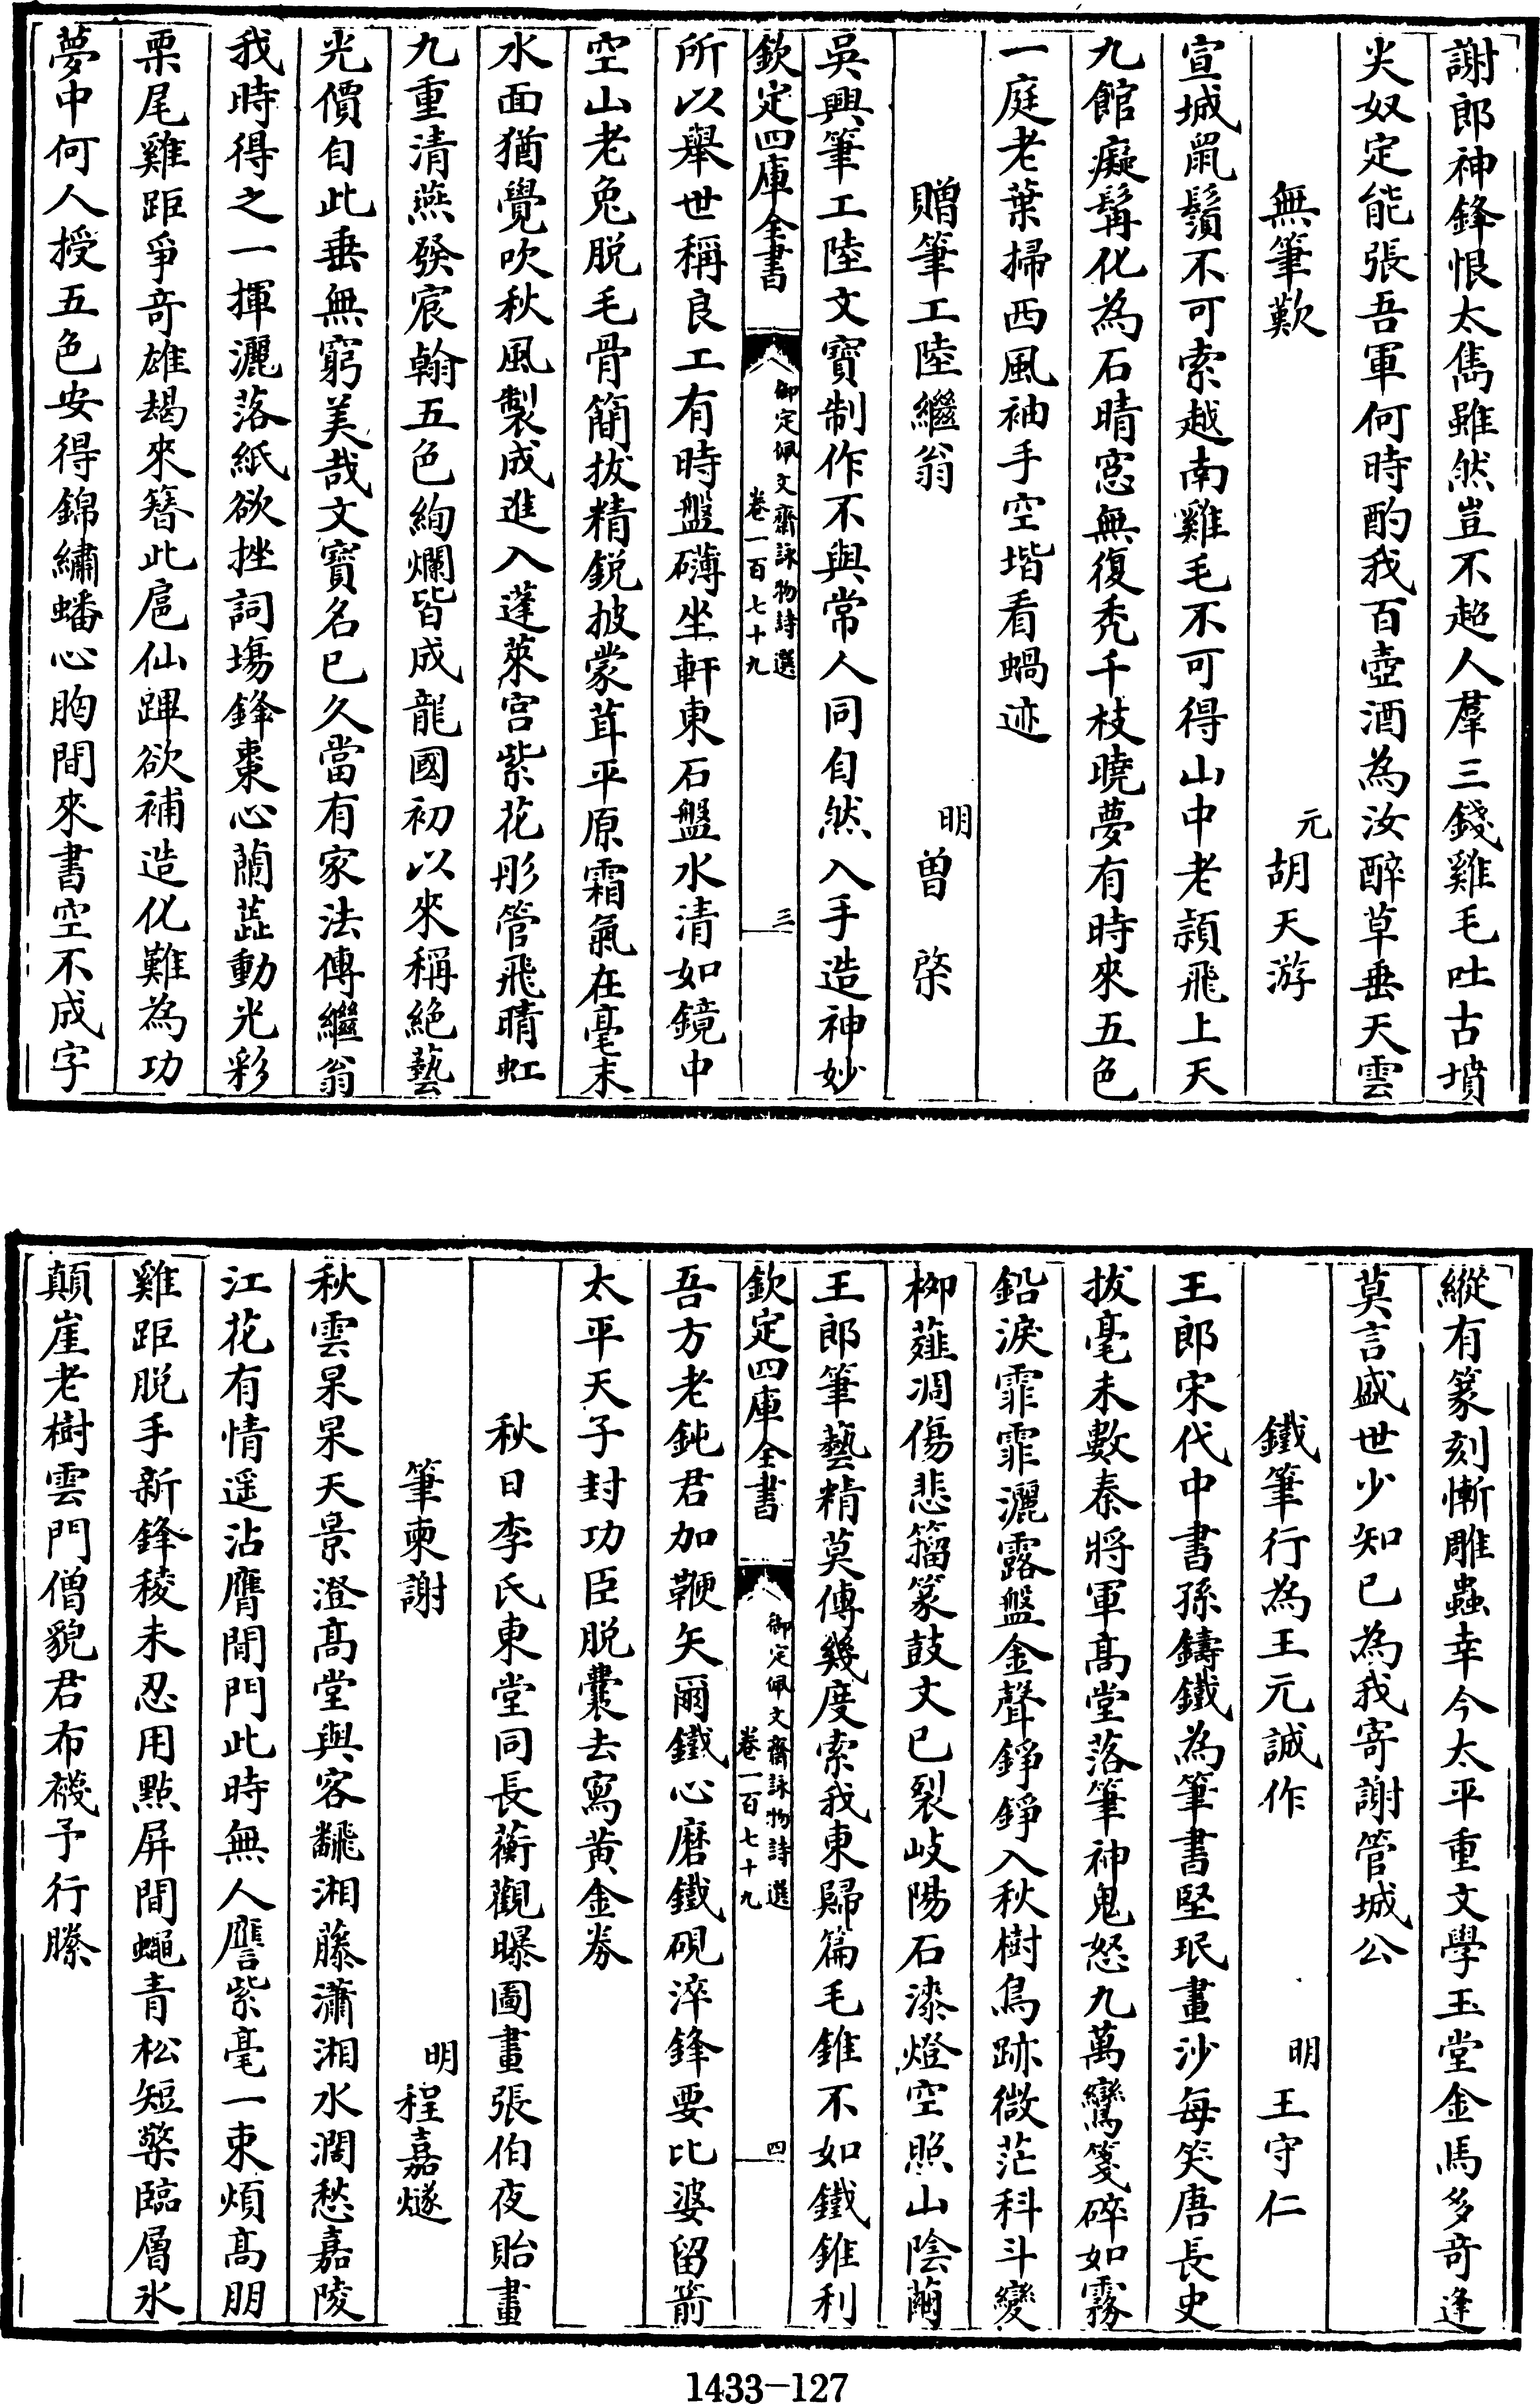 謝郎神鋒恨太雋雖然豈不超人羣三錢雞毛吐古墳
尖奴定能張吾軍何時酌我百壺酒為汝醉草垂天雲
無筆歎
元胡天游
宣城鼠鬚不可索越南雞毛不可得山中老潁飛上天
九館癡髯化為石晴窓無復秃千枝曉夢有時來五色
一庭老葉掃西風袖手空堦看蝸迹
贈筆工陸繼翁
明曽棨
吳興筆工陸文寶制作不與常人同自然入手造神妙
欽定四庫全書
御定佩文齋詠物詩選
卷一百七十九
三
所以舉世稱良工有時盤礴坐軒東石盤水清如鏡中
空山老兔脱毛骨簡抜精鋭披蒙茸平原霜氣在毫末
水面猶覺吹秋風製成進入蓬萊宮紫花彤管飛晴虹
九重清燕發宸翰五色絢爛皆成龍國初以來稱絶藝
光價自此垂無窮美哉文寶名已久當有家法傳繼翁
我時得之一揮灑落紙欲挫詞塲鋒棗心蘭蘂動光彩
栗尾雞距爭竒雄朅來簪此扈仙蹕欲補造化難為功
夢中何人授五色安得錦繡蟠心胸間來書空不成字
縱有篆刻慚雕蟲幸今太平重文學玉堂金馬多竒逢
莫言盛世少知已為我寄謝管城公
鐵筆行為王元誠作
明王守仁
王郎宋代中書孫鑄鐵為筆書堅珉畫沙每笑唐長史
拔毫未數秦將軍髙堂落筆神鬼怒九萬鸞箋碎如霧
鉛淚霏霏灑露盤金聲錚錚入秋樹鳥跡微茫科斗變
柳薤凋傷悲籀篆鼓文已裂岐陽石漆燈空照山陰繭
王郎筆藝精莫傳幾度索我東歸篇毛錐不如鐵錐利
欽定四庫全書
御定佩文齋詠物詩選
卷一百七十九
四
吾方老鈍君加鞭矢爾鐵心磨鐵硯淬鋒要比婆留箭
太平天子封功臣脱囊去寫黄金劵
秋日李氏東堂同長蘅觀曝圖畫張伯夜貽畫
筆柬謝
明程嘉燧
秋雲杲杲天景澄髙堂與客飜湘藤瀟湘水濶愁嘉陵
江花有情遥沾膺閒門此時無人譍紫毫一束煩髙朋
雞距脱手新鋒稜未忍用點屏間蠅青松短檠臨層氷
顛崖老樹雲門僧貌君布襪予行縢
1433-127